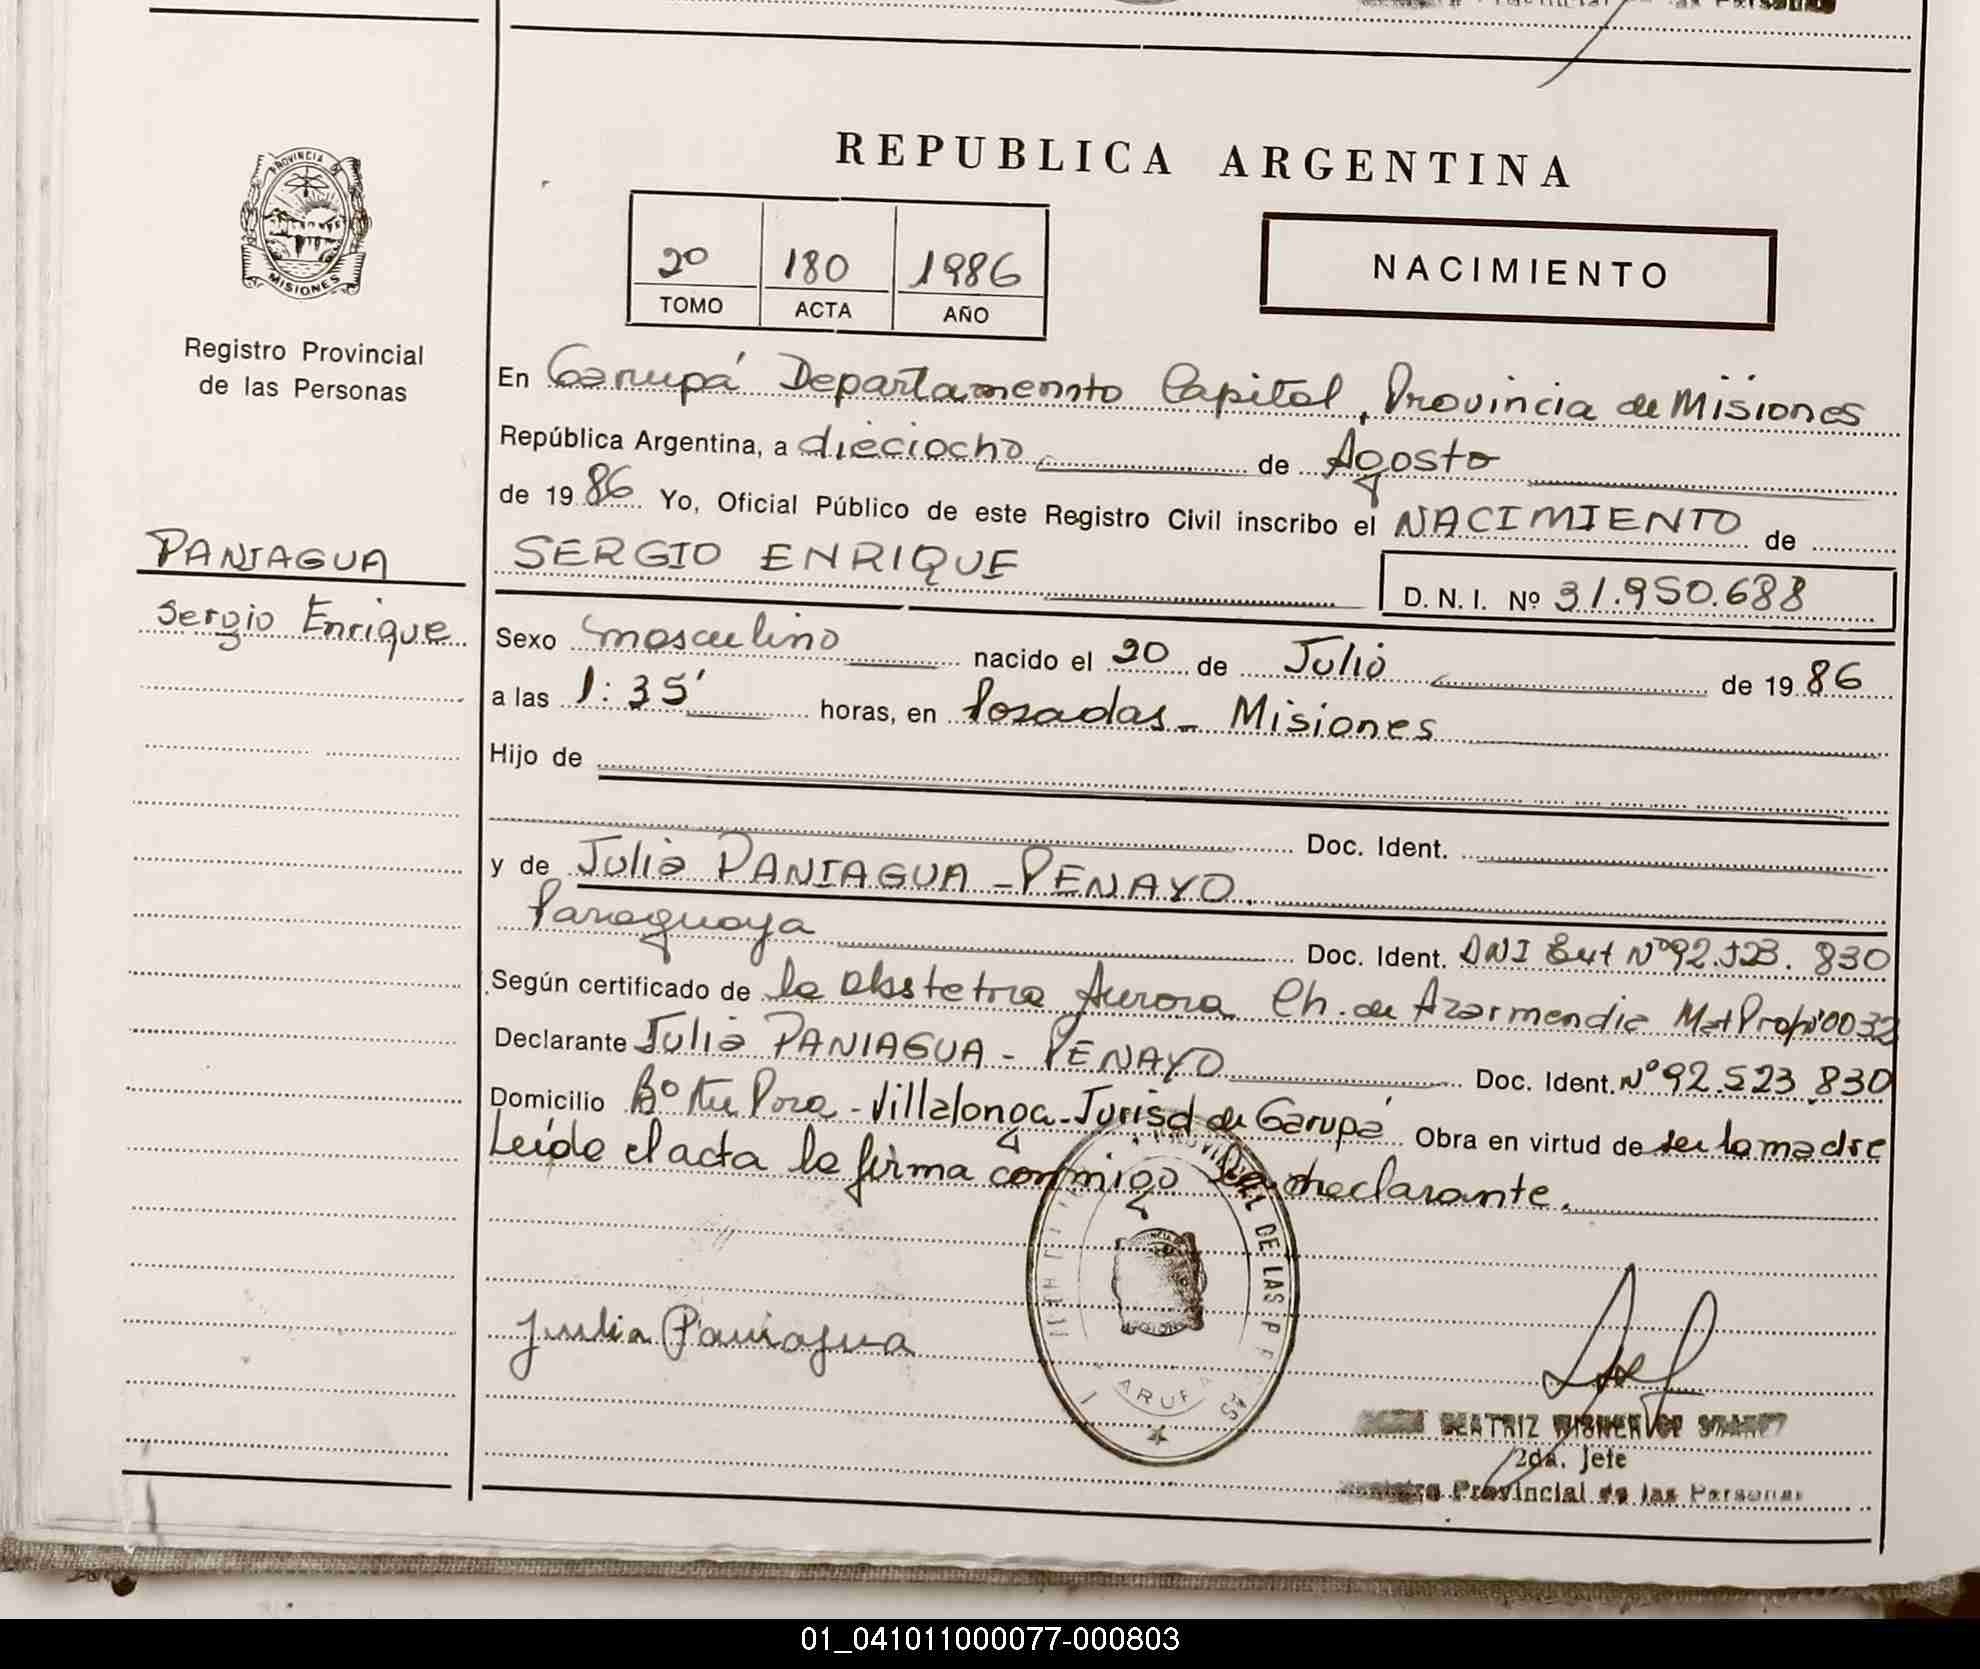 REPUBLICA ARGENTINA
PROVINCIA DE
MISIONES
Registro Provincial
de las Personas
2º 180 1986
TOMO ACTA AÑO
NACIMIENTO
En Garupá Departamennto Capital, Provincia de Misiones
República Argentina, a dieciocho de Agosto
de 1986 Yo, Oficial Público de este Registro Civil inscribo el NACIMIENTO de
PANIAGUA
SERGIO ENRIQUE
D. N. I. Nº 31.950.688
Sergio Enrique
Sexo masculino nacido el 20 de Julio de 1986
a las 1:35' horas, en Posadas - Misiones
Hijo de
Doc. Ident.
y de Julia PANIAGUA - PENAYO.
Paraguaya Doc. Ident. DNI Ext Nº 92.523.830
Según certificado de la obstetra Aurora Ch. de Azarmendia Mat Prof 0032
Declarante Julia PANIAGUA - PENAYO Doc. Ident. Nº 92.523.830
Domicilio Bº Pora - Villalonga - Jurisd de Garupá Obra en virtud de ser la madre
Leída el acta la firma conmigo la declarante.
Julia Paniagua
DE LAS
BEATRIZ
2da. Jefe
Provincial de las Personas
01_041011000077-000803